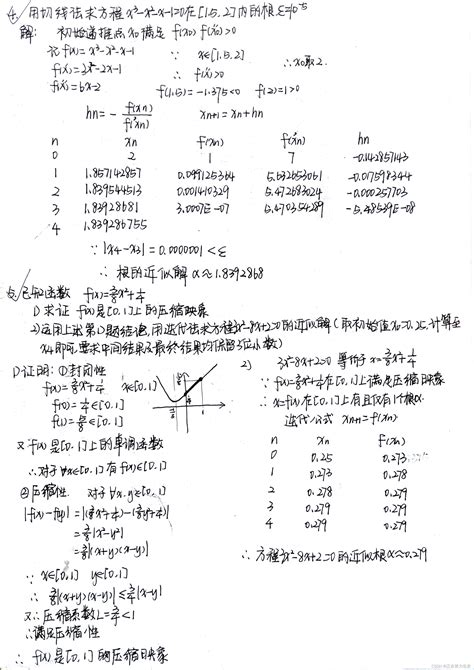 4. 用切线法求方程x³-x²-x-1=0在[1.5,2]内的根,ε=10⁻⁵
解: 初始迭代点x₀满足 f(x₀)f''(x₀)>0
记 f(x)=x³-x²-x-1 ∵ x∈[1.5,2] ∴x₀取2.
f'(x)=3x²-2x-1 ∴ f''(x)>0
f''(x)=6x-2 f(1.5)=-1.375<0 f(2)=1>0
hn=-f(xn)/f'(xn) xn+1=xn+hn
n xn f(xn) f'(xn) hn
0 2 1 7 -0.142857143
1 1.857142857 0.099125364 5.632653061 -0.017598344
2 1.839544513 0.001410329 5.472683024 -0.000257703
3 1.83928681 3.0007E-07 5.470354289 -5.48539E-08
4 1.839286755
∵ |x4-x3|=0.0000001<ε
∴ 根的近似解 α≈1.8392868
5. 已知函数 f(x)=3/8x²+1/4
1) 求证 f(x)是[0,1]上的压缩映象
2) 运用上述第1)题结论,用迭代法求方程3x²-8x+2=0的近似解(取初始值x₀=0.25,计算至
x4即可,要求中间结果及最终结果均保留3位小数)
1)证明:①封闭性
f(x)=3/8x²+1/4 x∈[0,1]
f(0)=1/4∈[0,1]
f(1)=5/8∈[0,1]
又 f(x)是[0,1]上的单调函数
∴对于∀x∈[0,1]有f(x)∈[0,1]
②压缩性 对于∀x,y∈[0,1]
|f(x)-f(y)|=|(3/8x²+1/4)-(3/8y²+1/4)|
=3/8|x²-y²|
=3/8|(x+y)(x-y)|
∵ x∈[0,1] y∈[0,1]
∴ 3/8|(x+y)(x-y)|≤3/4|x-y|
又∴压缩系数L=3/4<1
∴满足压缩性
∴ f(x)是[0,1]的压缩映象
2) 3x²-8x+2=0 等价于 x=3/8x²+1/4
∵ f(x)=3/8x²+1/4在[0,1]上满足压缩映象
∴ x=f(x)在[0,1]上有且仅有1个根α
迭代公式 xn+1=f(xn)
n xn f(xn)
0 0.25 0.273
1 0.273 0.278
2 0.278 0.279
3 0.279 0.279
4 0.279 0.279
∴ 方程3x²-8x+2=0的近似根α≈0.279